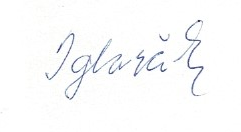 Iglarčík